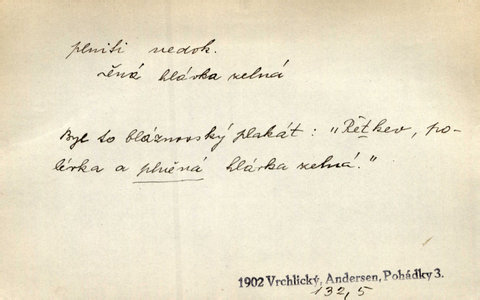 plniti nedok.
-ěná hlávka zelná
Byl to bláznovský plakát: „Řetkev, po-
lévka a plněná hlávka zelná."
1902 Vrchlický, Andersen, Pohádky 3.
132,5